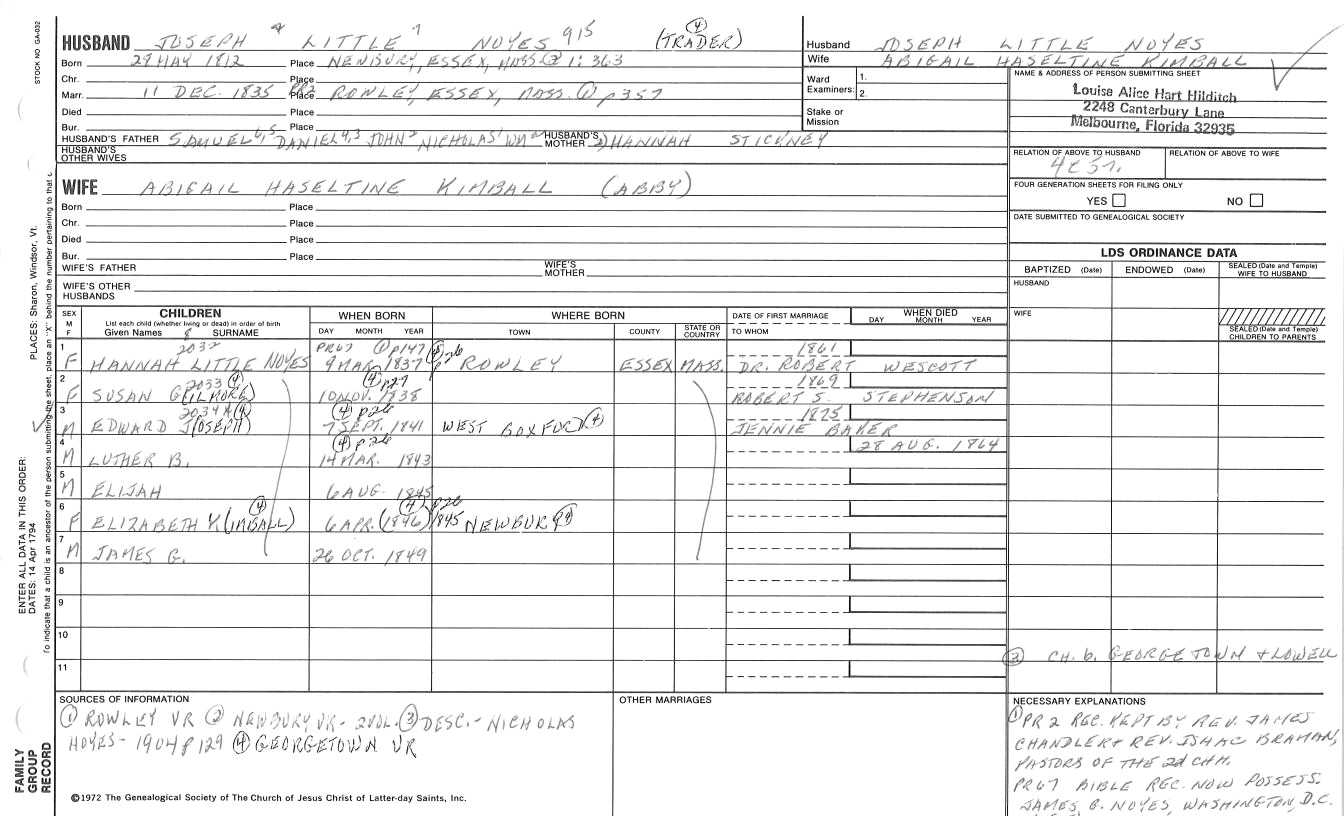 STOCK NO. GA-032
PLACES: Sharon, Windsor, Vt.
ENTER ALL DATA IN THIS ORDER:
DATES: 14 Apr 1794
To indicate that a child is an ancestor of the person submitting the sheet, place an "X" behind the number pertaining to that c
FAMILY GROUP RECORD
HUSBAND JOSEPH LITTLE NOYES 915 (TRADER) ④
Born 29 MAY 1812 Place NEWBURY, ESSEX, MASS. ② 1:363
Chr. Place
Marr. 11 DEC. 1835 PR2 Place ROWLEY, ESSEX, MASS. ① p357
Died Place
Bur. Place
HUSBAND'S FATHER SAMUEL 6,5 DANIEL 4,3 JOHN 2 NICHOLAS 1 WM HUSBAND'S MOTHER HANNAH STICKNEY
HUSBAND'S OTHER WIVES
WIFE ABIGAIL HASELTINE KIMBALL (ABBY)
Born Place
Chr. Place
Died Place
Bur. Place
WIFE'S FATHER WIFE'S MOTHER
WIFE'S OTHER HUSBANDS
Husband JOSEPH LITTLE NOYES
Wife ABIGAIL HASELTINE KIMBALL
Ward Examiners: 1. 2.
Stake or Mission
NAME & ADDRESS OF PERSON SUBMITTING SHEET
Louise Alice Hart Hilditch
2248 Canterbury Lane
Melbourne, Florida 32935
RELATION OF ABOVE TO HUSBAND RELATION OF ABOVE TO WIFE
FOUR GENERATION SHEETS FOR FILING ONLY
YES NO
DATE SUBMITTED TO GENEALOGICAL SOCIETY
LDS ORDINANCE DATA
BAPTIZED (Date) ENDOWED (Date) SEALED (Date and Temple) WIFE TO HUSBAND
HUSBAND
WIFE
SEALED (Date and Temple) CHILDREN TO PARENTS
SEX M F CHILDREN WHEN BORN WHERE BORN DATE OF FIRST MARRIAGE WHEN DIED
List each child (whether living or dead) in order of birth
Given Names 8 SURNAME DAY MONTH YEAR TOWN COUNTY STATE OR COUNTRY TO WHOM DAY MONTH YEAR
1 2032 PR67 ① p147 ④ p26 1861
F HANNAH LITTLE NOYES 9 MAR. 1837 ROWLEY ESSEX MASS. DR. ROBERT WESCOTT
2 2033 ④ ④ p27 1869
F SUSAN G(ILMORE) 10 NOV. 1838 ROBERT S. STEPHENSON
3 2034 X ④ ④ p26 1875
M EDWARD J(OSEPH) 7 SEPT. 1841 WEST BOXFORD ④ JENNIE BAKER
4 ④ p26 28 AUG. 1864
M LUTHER B. 14 MAR. 1843
5
M ELIJAH 6 AUG. 1845
6 ④ ④ p26
F ELIZABETH K(IMBALL) 6 APR. (1846) 1845 NEWBURY ④
7
M JAMES G. 26 OCT. 1849
8
9
10
11
③ CH. b. GEORGETOWN + LOWELL
SOURCES OF INFORMATION
① ROWLEY VR ② NEWBURY VR - 2 VOL. ③ DESC. - NICHOLAS
NOYES - 1904 p129 ④ GEORGETOWN VR
OTHER MARRIAGES
NECESSARY EXPLANATIONS
① PR2 REC. KEPT BY REV. JAMES
CHANDLER + REV. ISAAC BRAMAN,
PASTORS OF THE 2d CHH.
PR67 BIBLE REC. NOW POSSESS.
JAMES B. NOYES, WASHINGTON, D.C.
©1972 The Genealogical Society of The Church of Jesus Christ of Latter-day Saints, Inc.